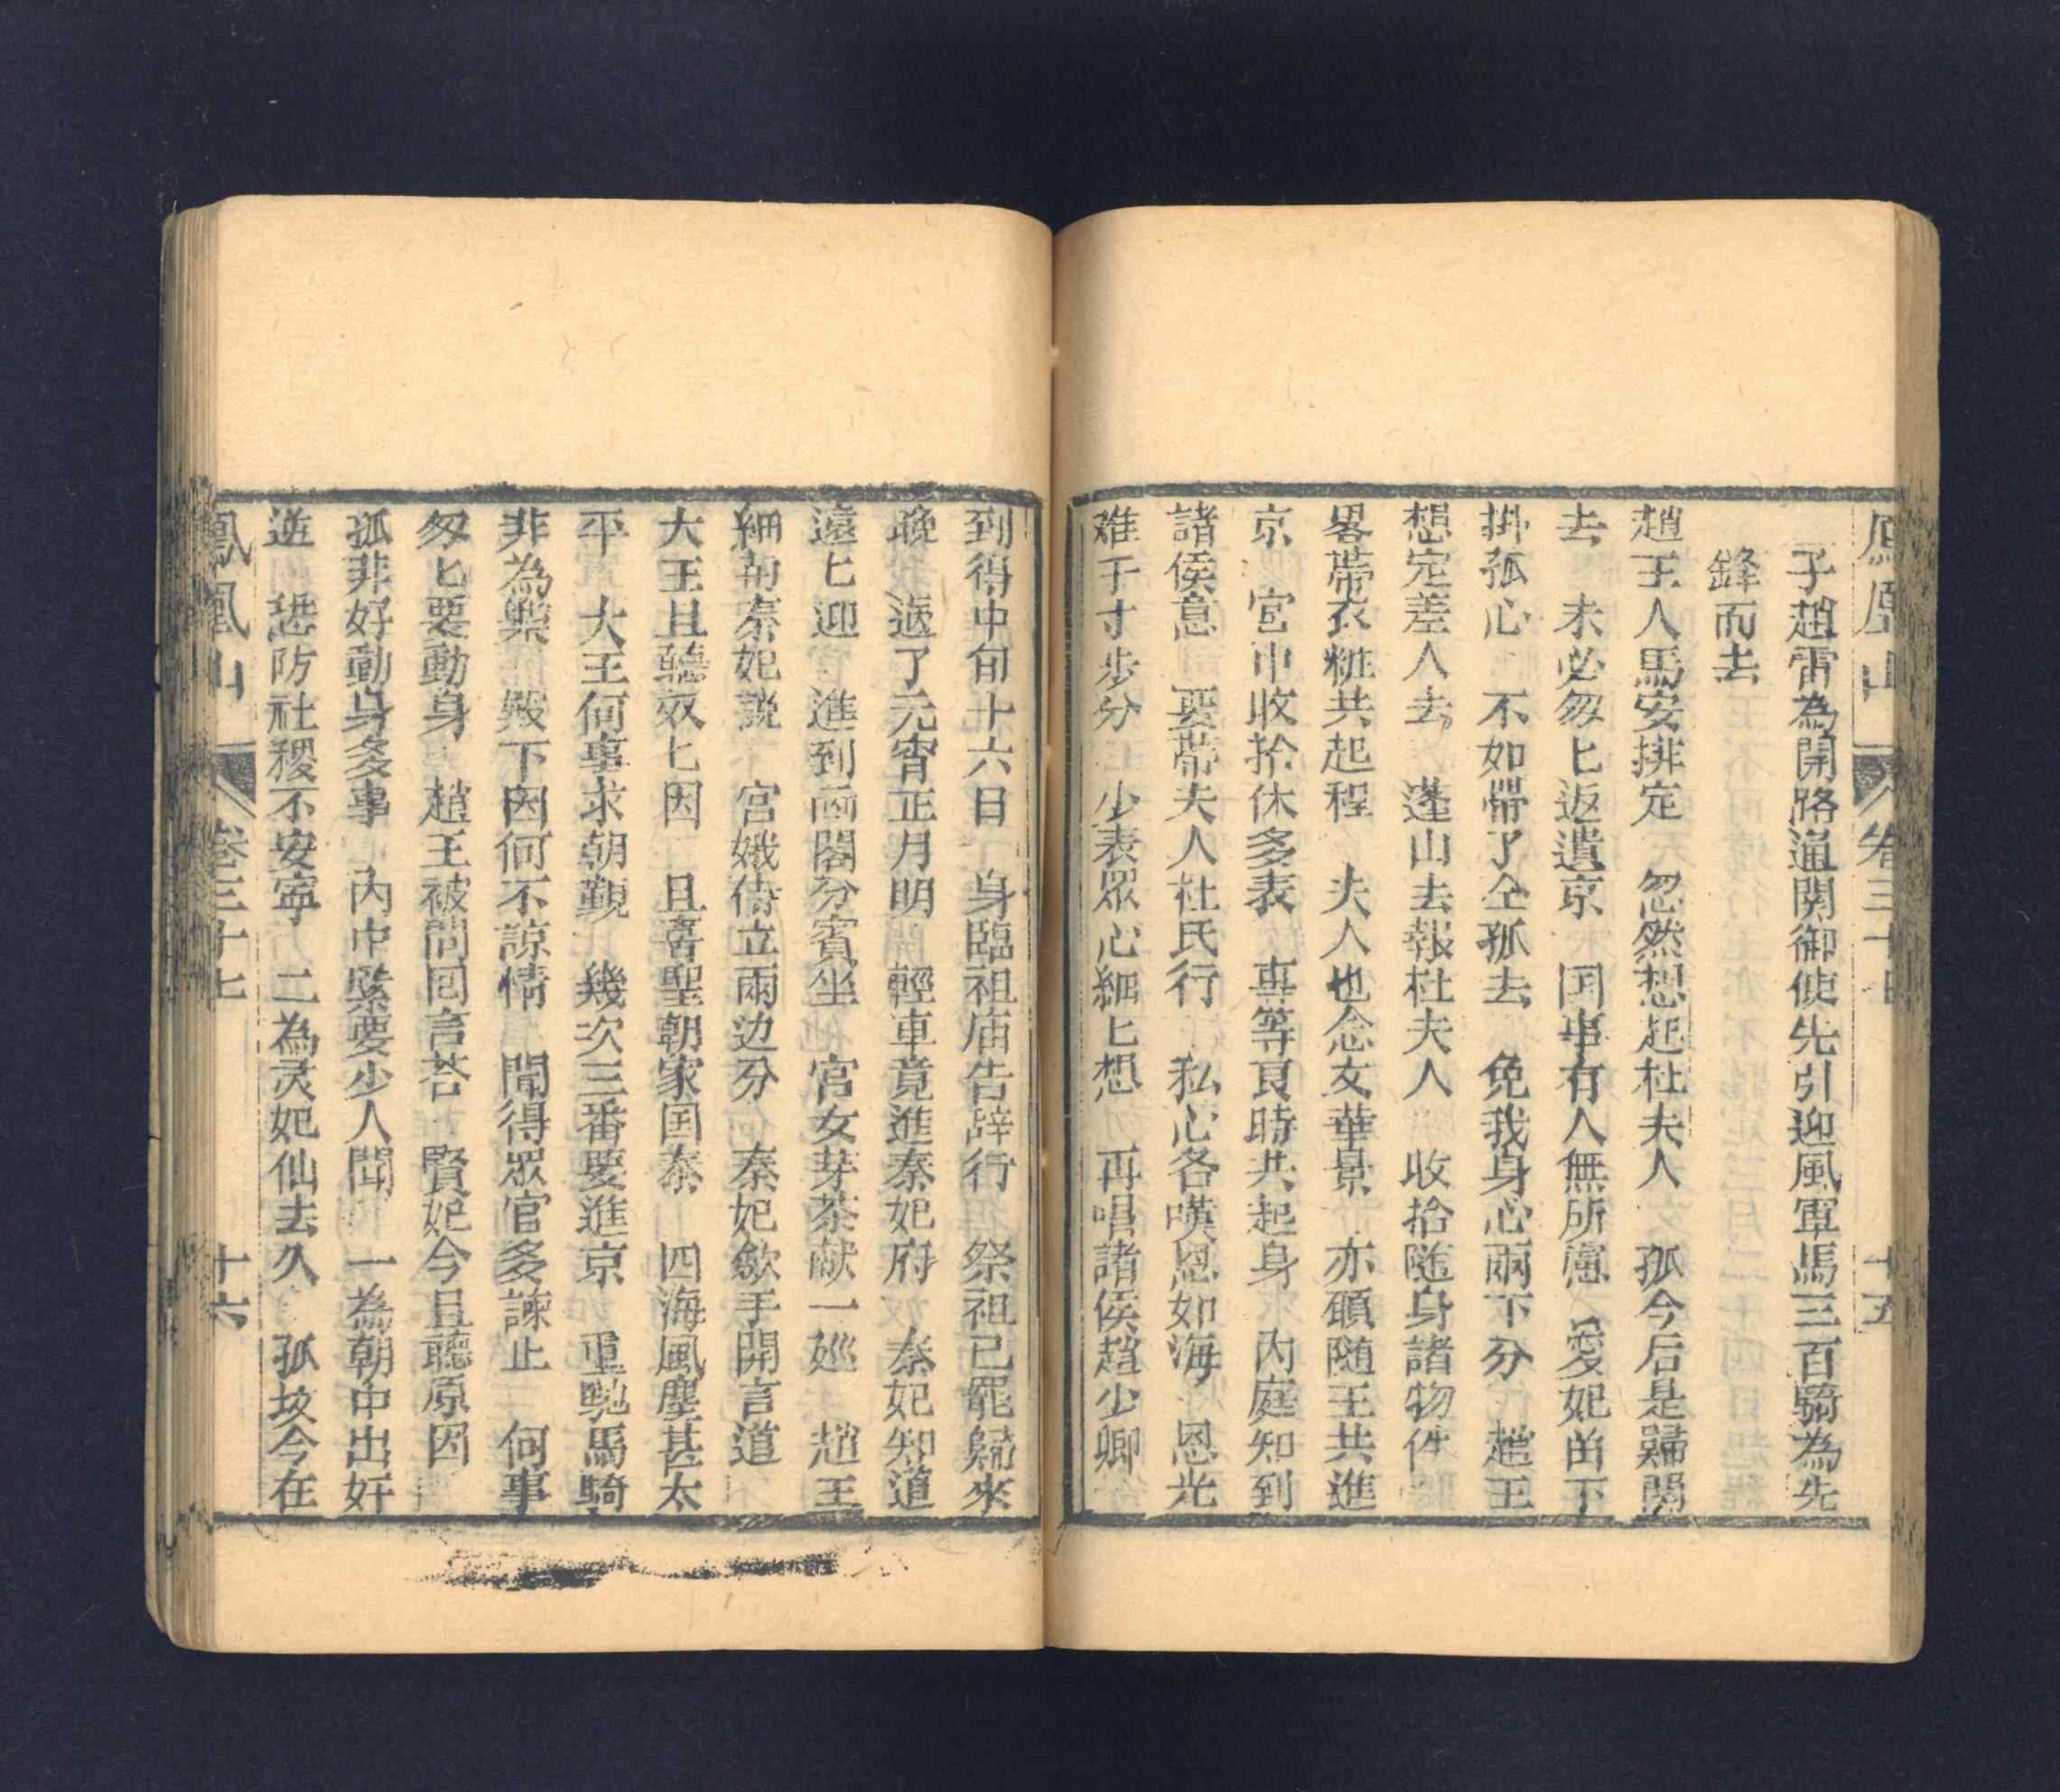 鳳凰山 卷三十七 十五
子趙雷為開路通関御使先引迎風軍馬三百騎為先
鋒而去
趙王人馬安排定 忽然想起杜夫人 孤今后是歸関
去 未必匆匕返遺京 囯事有人無所慮 愛妃苗下
掛孤心 不如帶了仝孤去 免我身心兩下分 趙王
想定差人去 蓬山去報杜夫人 收拾随身諸物件
畧帶衣粧共起程 夫人也念女華景 亦願随王共進
京 宮中收拾休多表 專等良時共起身 內庭知到
諸侯意 要帶夫人杜氏行 私心各嘆恩如海 恩光
难干寸步分 少表眾心細匕想 再唱諸侯趙少卿
到得中旬十六日 身臨祖庙告辝行 祭祖已罷歸來
晚 返了元宵正月明 輕車竟進秦妃府 秦妃知道
遠匕迎 進到画閣分賓坐 宮女芽茶献一廵 趙王
細問秦妃説 宮娥侍立兩边分 秦妃歛手開言道
大王且聽奴匕因 且喜聖朝家囯泰 四海風塵甚太
平 大王何事求朝覲 幾次三番要進京 重馳馬騎
非為樂 殿下因何不諒情 聞得眾官多諫止 何事
匆匕要動身 趙王被問囬言荅 賢妃今且聽原因
孤非好動身多事 內中緊要少人聞 一為朝中出奸
逆 恐防社稷不安寧 二為灵妃仙去久 孤坟今在
鳳凰山 卷三十七 十六